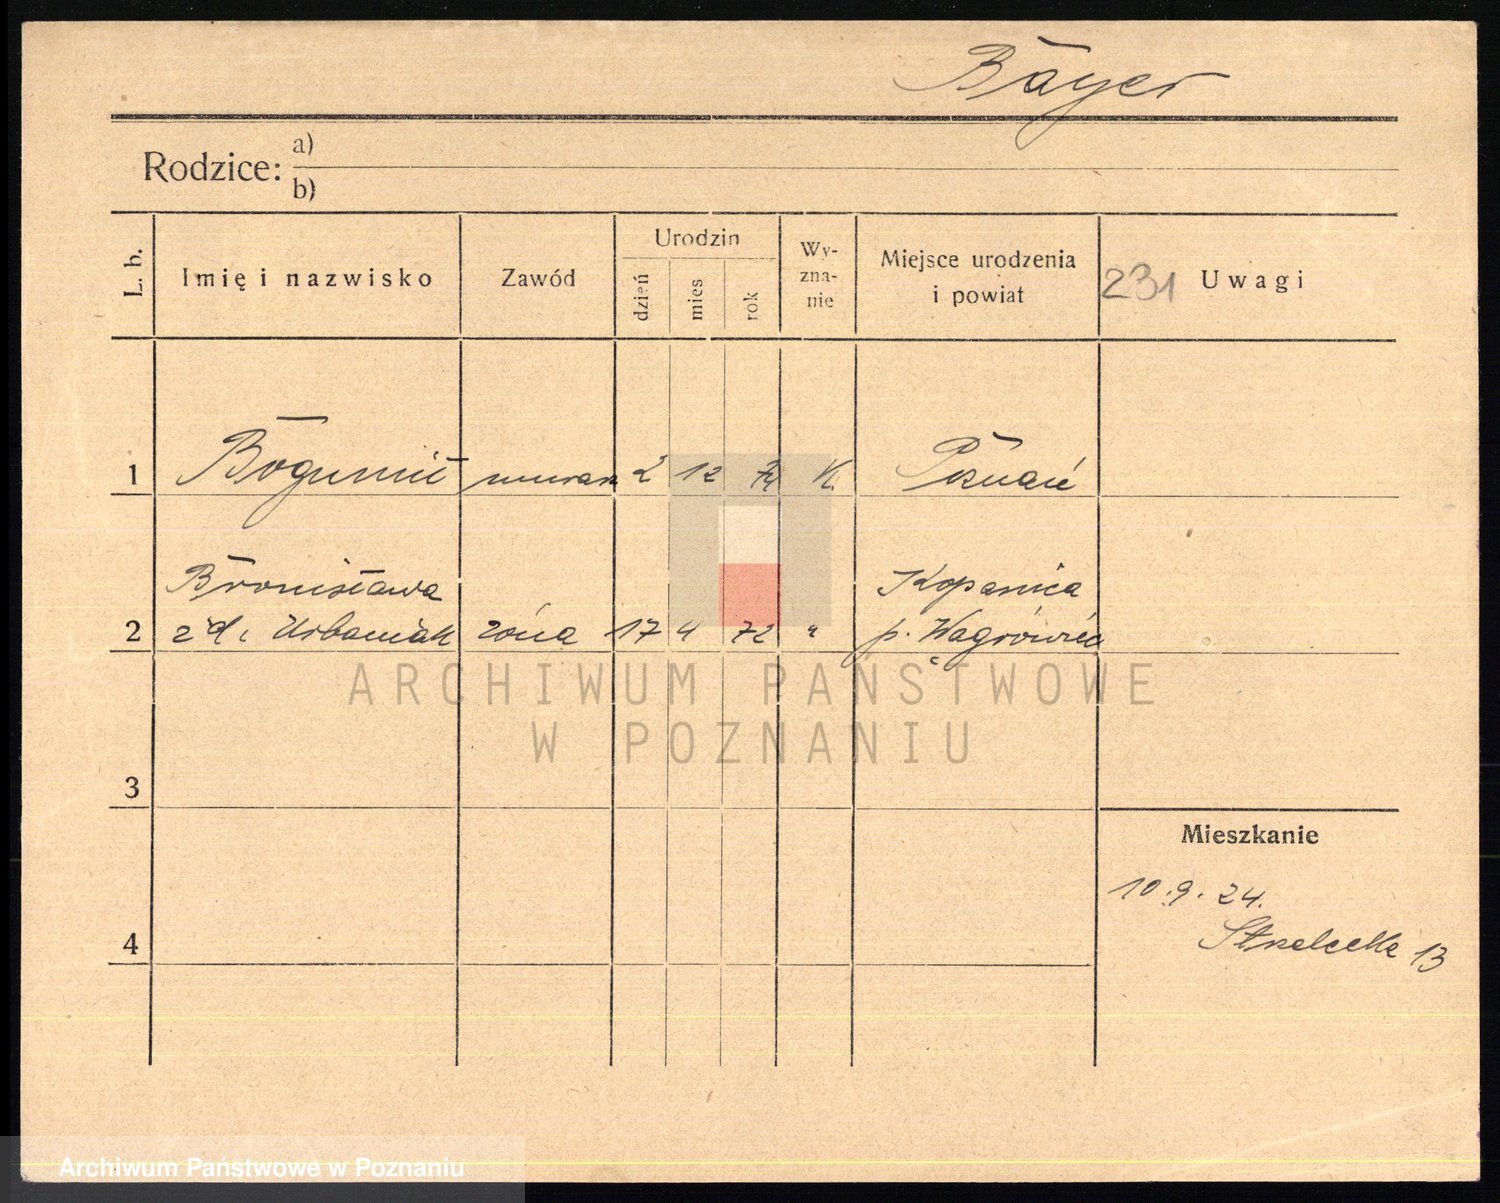 Bayer
Rodzice: a)
b)
L. b.
Imię i nazwisko
Zawód
Urodzin
dzień
mies
rok
Wy-
zna-
nie
Miejsce urodzenia
i powiat
231
Uwagi
1 Bogumił murarz 2 12 74 K. Poznań
Bronisława Kopanica
2 z d. Urbaniak żona 17 4 72 " p. Wągrówiec
3
4
Mieszkanie
10.9.24.
Strzelecka 13
ARCHIWUM PAŃSTWOWE
W POZNANIU
Archiwum Państwowe w Poznaniu